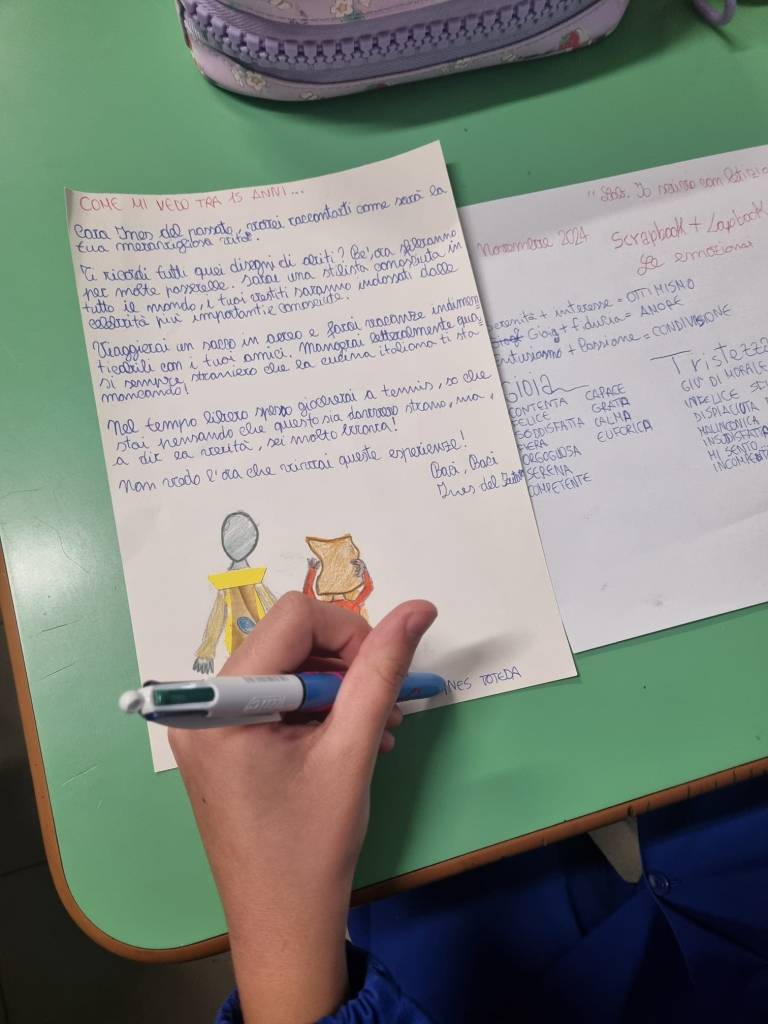 COME MI VEDO TRA 15 ANNI...
Cara Ines del passato, vorrei raccontarti come sarà la
tua meravigliosa vita.
Ti ricordi tutti quei disegni di vestiti? Be', ora sfileranno
per molte passerelle. Sarai una stilista conosciuta in
tutto il mondo, i tuoi vestiti saranno indossati dalle
celebrità più importanti e conosciute.
Viaggerai un sacco in aereo e farai vacanze indimen=
ticabili con i tuoi amici. Mangerai letteralmente qua=
si sempre straniero che la cucina italiana ti sta
mancando!
Nel tempo libero spesso giocherai a tennis, so che
stai pensando che questo sia davvero strano, ma,
a dir la verità, sei molto brava!
Non vedo l'ora che vivrai queste esperienze!
Baci, Baci
Ines del
INES TOTEDA
Io scrivo con
Novembre 2024 Scrapbook + Lapbook
Le emozioni
Serenità + interesse = OTTIMISMO
Gioia + fiducia = AMORE
Entusiasmo + Passione = CONDIVISIONE
GIOIA
CONTENTA CAPACE
FELICE GRATA
SODDISFATTA CALMA
FIERA EUFORICA
ORGOGLIOSA
SERENA
COMPETENTE
Tristezza
GIÙ DI MORALE
INFELICE
DISPIACIUTA
MALINCONICA
INSODDISFATTA
MI SENTO